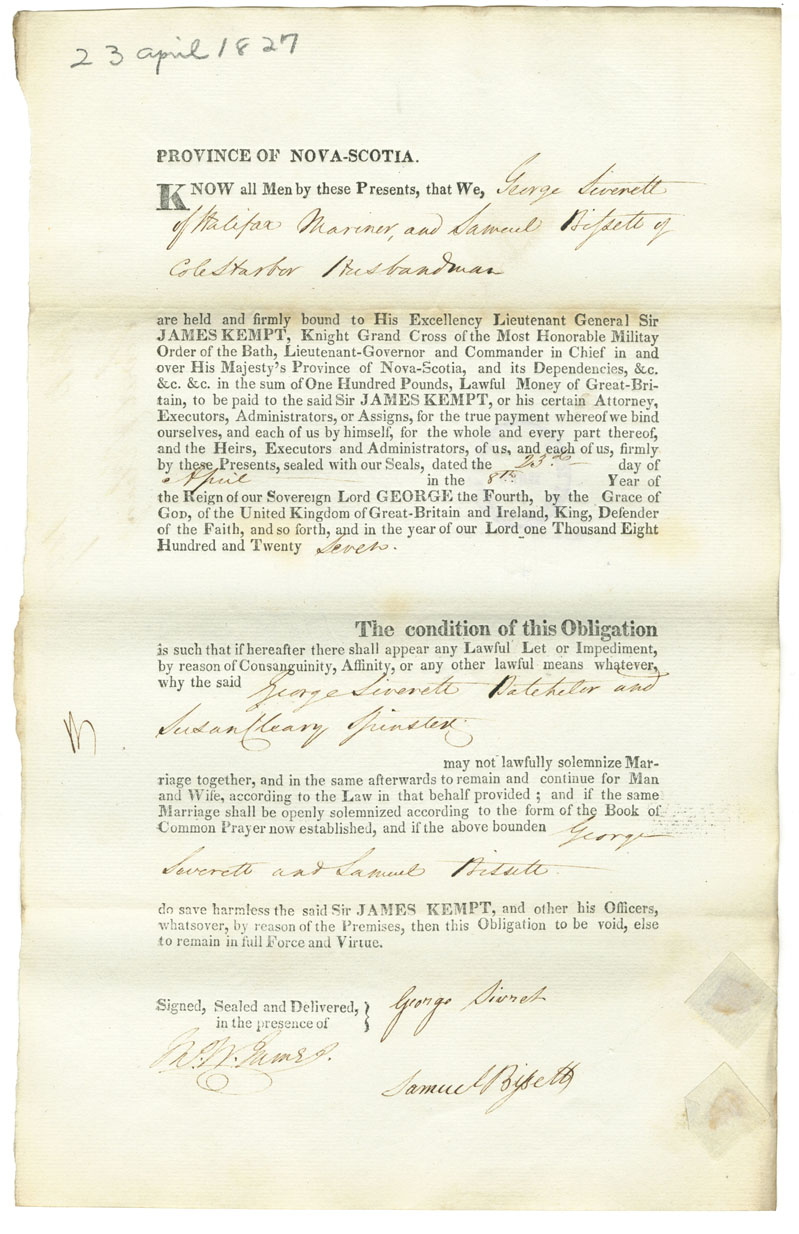 23 april 1827
PROVINCE OF NOVA-SCOTIA.
KNOW all Men by these Presents, that We, George Siverett
of Halifax Mariner, and Samuel Bissett of
Cole Harbor Husbandman
are held and firmly bound to His Excellency Lieutenant General Sir
JAMES KEMPT, Knight Grand Cross of the Most Honorable Militay
Order of the Bath, Lieutenant-Governor and Commander in Chief in and
over His Majesty's Province of Nova-Scotia, and its Dependencies, &c.
&c. &c. in the sum of One Hundred Pounds, Lawful Money of Great-Bri-
tain, to be paid to the said Sir JAMES KEMPT, or his certain Attorney,
Executors, Administrators, or Assigns, for the true payment whereof we bind
ourselves, and each of us by himself, for the whole and every part thereof,
and the Heirs, Executors and Administrators, of us, and each of us, firmly
by these Presents, sealed with our Seals, dated the 23.d day of
April in the 8th Year of
the Reign of our Sovereign Lord GEORGE the Fourth, by the Grace of
GOD, of the United Kingdom of Great-Britain and Ireland, King, Defender
of the Faith, and so forth, and in the year of our Lord one Thousand Eight
Hundred and Twenty Seven.
The condition of this Obligation
is such that if hereafter there shall appear any Lawful Let or Impediment,
by reason of Consanguinity, Affinity, or any other lawful means whatever,
why the said George Siverett Batchelor and
Susan Cleary Spinster
may not lawfully solemnize Mar-
riage together, and in the same afterwards to remain and continue for Man
and Wife, according to the Law in that behalf provided ; and if the same
Marriage shall be openly solemnized according to the form of the Book of
Common Prayer now established, and if the above bounden George
Severett and Samuel Bissett
do save harmless the said Sir JAMES KEMPT, and other his Officers,
whatsover, by reason of the Premises, then this Obligation to be void, else
to remain in full Force and Virtue.
Signed, Sealed and Delivered, } George Sivret
in the presence of
Samuel Bissett